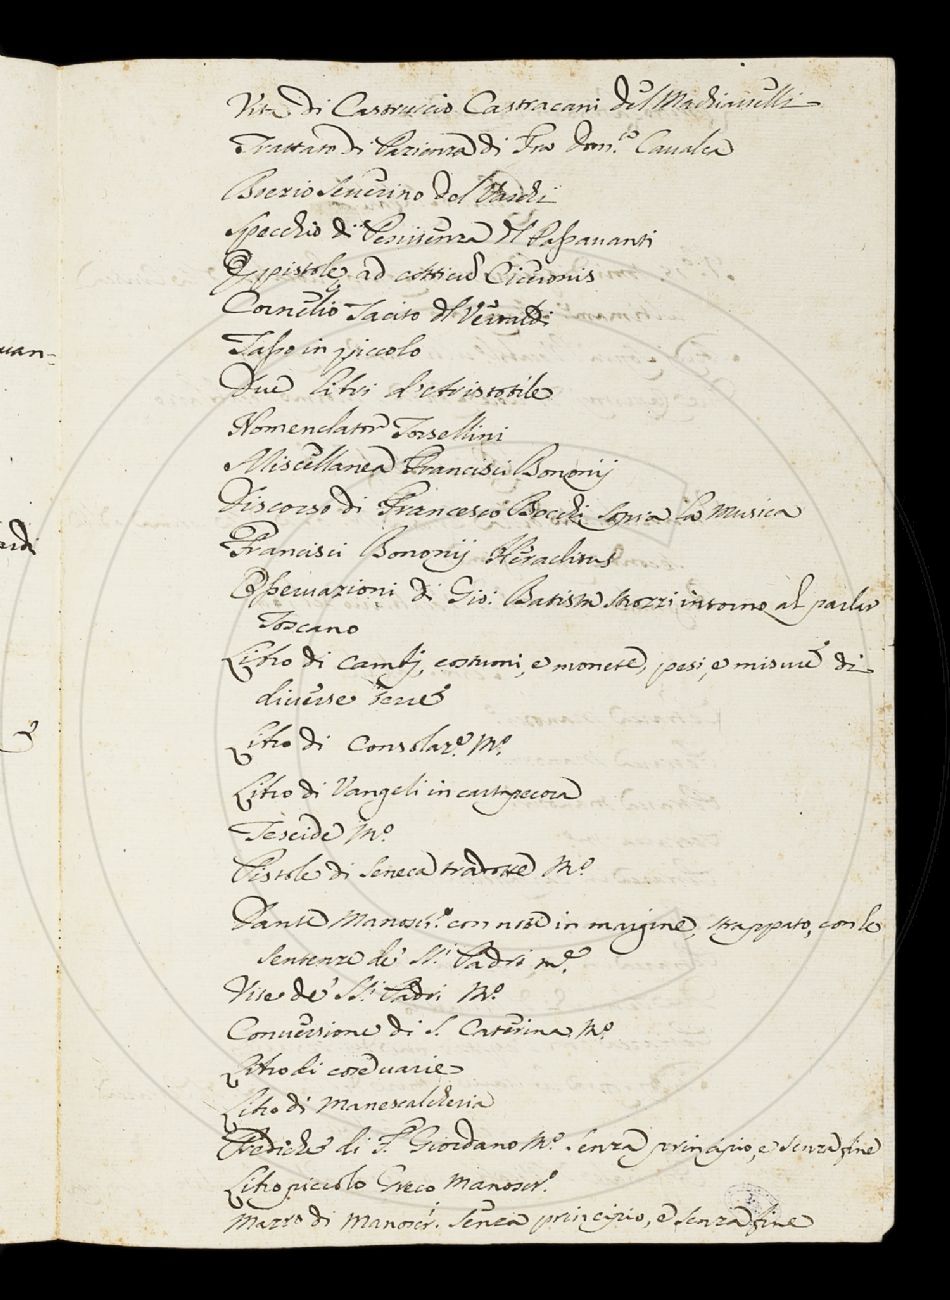 Vita di Castruccio Castracani del Machiavelli
Trattato di Pazienza di Fra Dom.co Cavalca
Boezio Severino del Varchi
Specchio di Penitenza del Passavanti
Epistole ad Atticū Ciceronis
Cornelio Tacito del
Tasso in piccolo
Due libri d'Aristotile
Nomenclator Torsellini
Miscellanea Francisci Bononij
Discorso di Francesco Bocchi sopra la Musica
Francisci Bononij Heraclitus
Osservazioni di Gio: Batista Strozzi intorno al parlar
Toscano
Libro di cambj, costumi, e monete, pesi, e misure di
diverse Terre
Libro di Consolaz.e M.o
Libro di Vangeli in cartapecora
Teseide M.o
Pistole di Seneca tradotte M.o
Dante Manoscr.o con note in margine, strappato, con le
Sentenze de' SS.i Padri m.o
Vite de' SS.i Padri M.o
Conversione di S. Caterina M.o
Libro di cose varie
Libro di Manescalcheria
Prediche di F. Giordano M.o senza principio, e senza fine
Libro piccolo Greco Manoscr.o
Mazzo di Manoscr.i senza principio, e senza fine
uan-
ardi